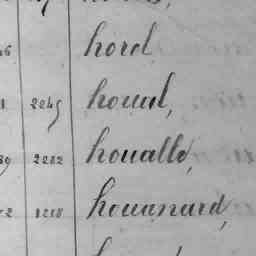 hord
2245 houal,
2282 houallé,
1218 houasnard,